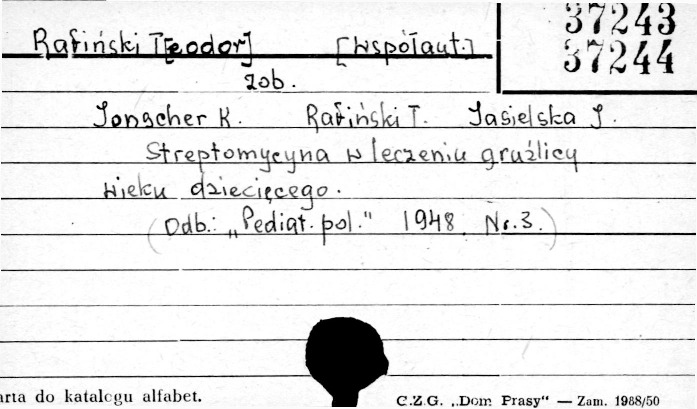 37243
37244
Rafiński T[eodor] [współaut.]
zob.
Jonscher K. Rafiński T. Jasielska J.
Streptomycyna w leczeniu gruźlicy
wieku dziecięcego.
(Odb.: „Pediat. pol." 1948. Nr. 3.)
arta do katalogu alfabet. C.Z.G. „Dom Prasy" — Zam. 1988/50